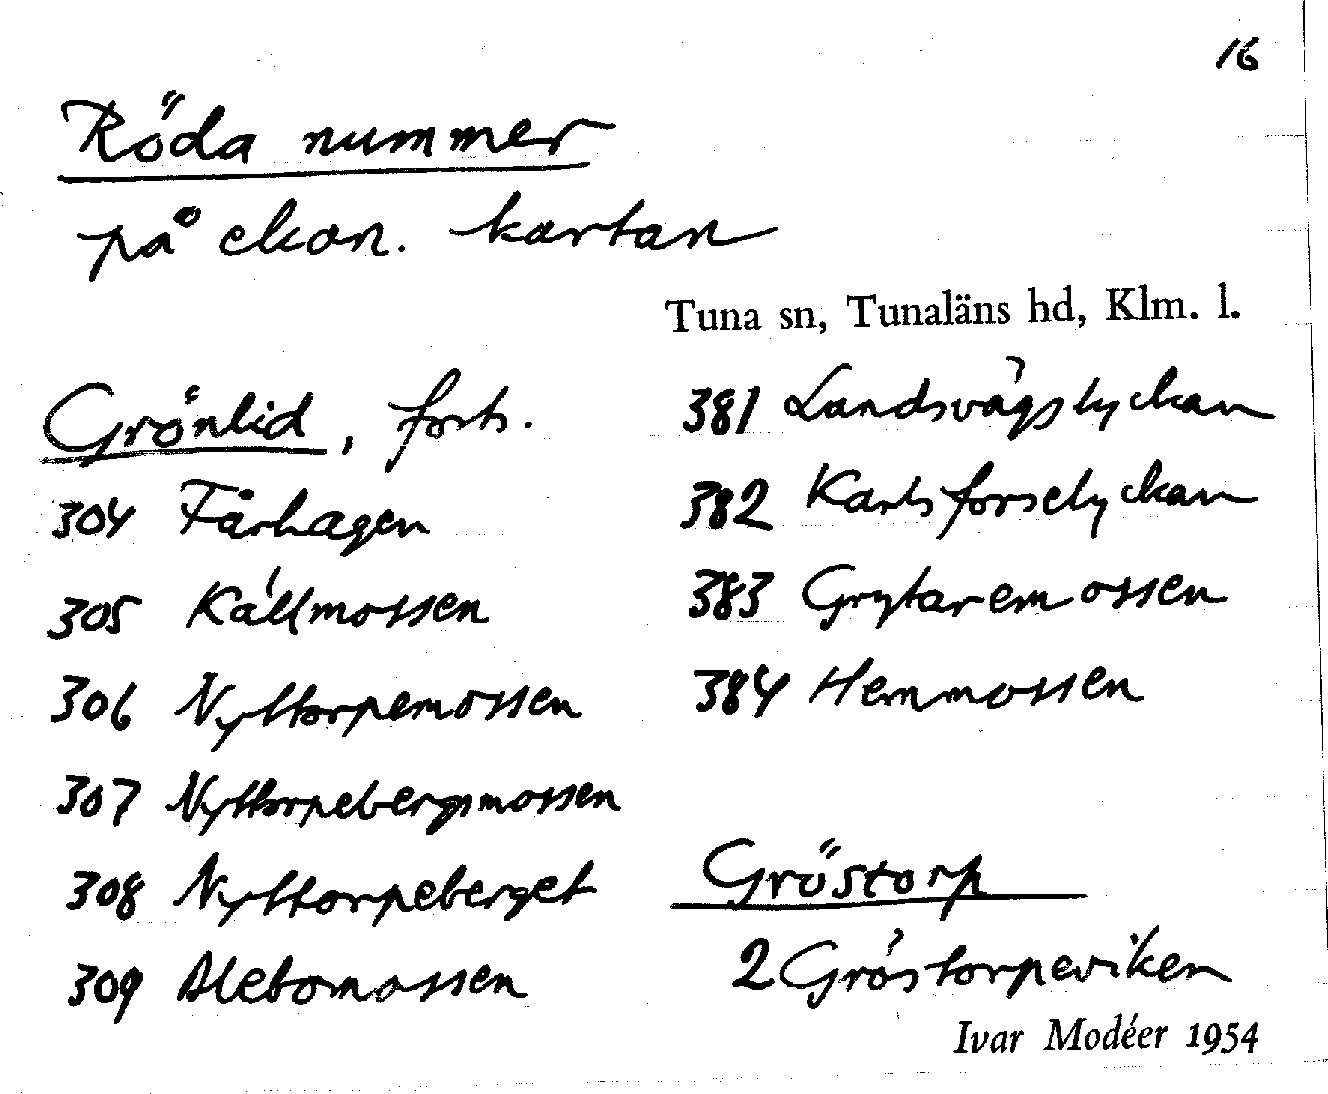 16
Röda nummer
på ekon. kartan
Tuna sn, Tunaläns hd, Klm. l.
Grönlid, forts.
304 Fårhagen
305 Källmossen
306 Nyttorpemossen
307 Nyttorpebergsmossen
308 Nyttorpeberget
309 Alebomossen
381 Landsvägslyckan
382 Karlsforselyckan
383 Grytaremossen
384 Hemmossen
Gröstorp
2 Gröstorpeviken
Ivar Modéer 1954